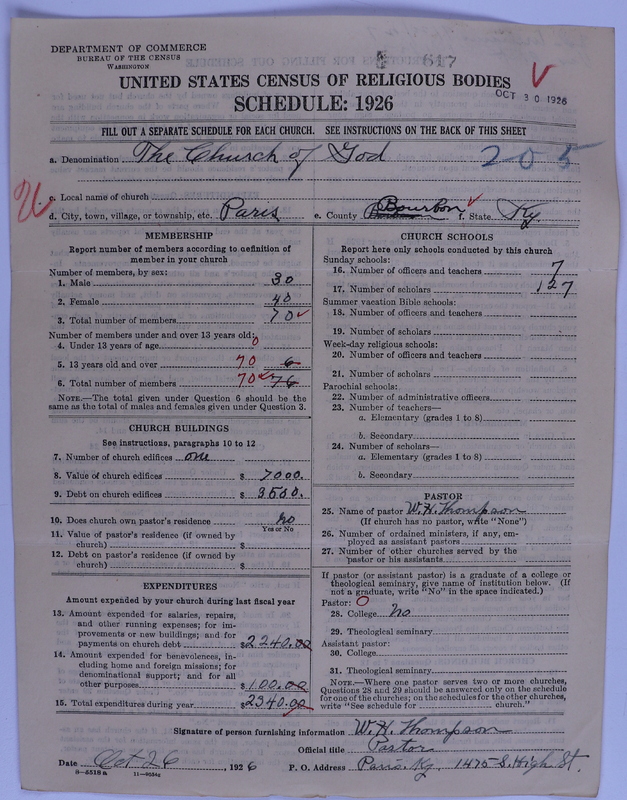 DEPARTMENT OF COMMERCE
BUREAU OF THE CENSUS
WASHINGTON
617
UNITED STATES CENSUS OF RELIGIOUS BODIES
SCHEDULE: 1926
OCT 30 1926
FILL OUT A SEPARATE SCHEDULE FOR EACH CHURCH. SEE INSTRUCTIONS ON THE BACK OF THIS SHEET
a. Denomination The Church of God 205
c. Local name of church
d. City, town, village, or township, etc. Paris e. County Bourbon f. State Ky
MEMBERSHIP
Report number of members according to definition of
member in your church
Number of members, by sex:
1. Male 30
2. Female 40
3. Total number of members 70
Number of members under and over 13 years old:
4. Under 13 years of age 0
5. 13 years old and over 70 6
6. Total number of members 70 76
NOTE.—The total given under Question 6 should be
same as the total of males and females given under Question 3.
CHURCH BUILDINGS
See instructions, paragraphs 10 to 12
7. Number of church edifices one
8. Value of church edifices $ 7000.
9. Debt on church edifices $ 3500.
10. Does church own pastor's residence No
Yes or No
11. Value of pastor's residence (if owned by
church) $
12. Debt on pastor's residence (if owned by
church) $
EXPENDITURES
Amount expended by your church during last fiscal year
13. Amount expended for salaries, repairs,
and other running expenses; for im-
provements or new buildings; and for
payments on church debt $2240.00
14. Amount expended for benevolences, in-
cluding home and foreign missions; for
denominational support; and for all
other purposes $100.00
15. Total expenditures during year $2340.00
CHURCH SCHOOLS
Report here only schools conducted by this church
Sunday schools:
16. Number of officers and teachers 7
17. Number of scholars 127
Summer vacation Bible schools:
18. Number of officers and teachers
19. Number of scholars
Week-day religious schools:
20. Number of officers and teachers
21. Number of scholars
Parochial schools:
22. Number of administrative officers
23. Number of teachers—
a. Elementary (grades 1 to 8)
b. Secondary
24. Number of scholars—
a. Elementary (grades 1 to 8)
b. Secondary
PASTOR
25. Name of pastor W. H. Thompson
(If church has no pastor, write "None")
26. Number of ordained ministers, if any, em-
ployed as assistant pastors
27. Number of other churches served by the
pastor or his assistants
If pastor (or assistant pastor) is a graduate of a college or
theological seminary, give name of institution below. (If
not a graduate, write "No" in the space indicated.)
Pastor:
28. College No
29. Theological seminary
Assistant pastor:
30. College
31. Theological seminary
NOTE.—Where one pastor serves two or more churches,
Questions 28 and 29 should be answered only on the schedule
for one of the churches; on the schedules for the other churches,
write "See schedule for church."
Signature of person furnishing information W. H. Thompson
Official title Pastor
Date Oct 26, 1926 P. O. Address Paris, Ky, 1475 S. High St.
8—5518 a